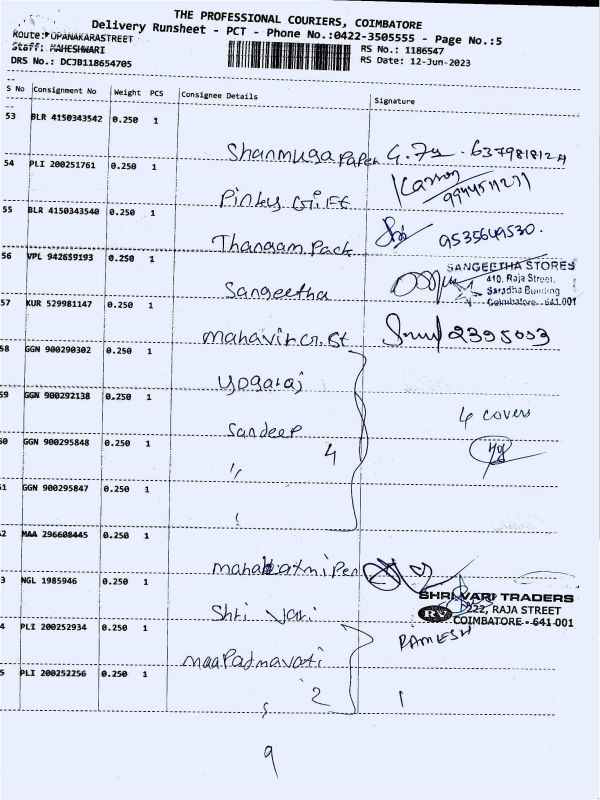 THE PROFESSIONAL COURIERS, COIMBATORE
Delivery Runsheet - PCT - Phone No.:0422-3505555 - Page No.:5
Route: OPANAKARASTREET
RS No.: 1186547
Staff: MAHESHWARI
RS Date: 12-Jun-2023
DRS No.: DCJB118654705
S No Consignment No Weight PCS Consignee Details Signature
53 BLR 4150343542 0.250 1
Shanmuga Paper
54 PLI 200251761 0.250 1
Pinky Gift
55 BLR 4150343540 0.250 1
Thangam Pack 9535649530.
56 VPL 942659193 0.250 1
SANGEETHA STORES
410, Raja Street,
Saradha Building
Coimbatore - 641 001
Sangeetha
57 KUR 529981147 0.250 1
mahavir G. St 2395003
58 GGN 900290302 0.250 1
yogaraj
59 GGN 900292138 0.250 1
4 covers
Sandeep
60 GGN 900295848 0.250 1
4
51 GGN 900295847 0.250 1
52 MAA 296608445 0.250 1
Pen
53 NGL 1985946 0.250 1
SHRI VARI TRADERS
RV 222, RAJA STREET
COIMBATORE - 641 001
Shri Vari
4 PLI 200252934 0.250 1
RAMESH
maa Padmavati
5 PLI 200252256 0.250 1
2
9